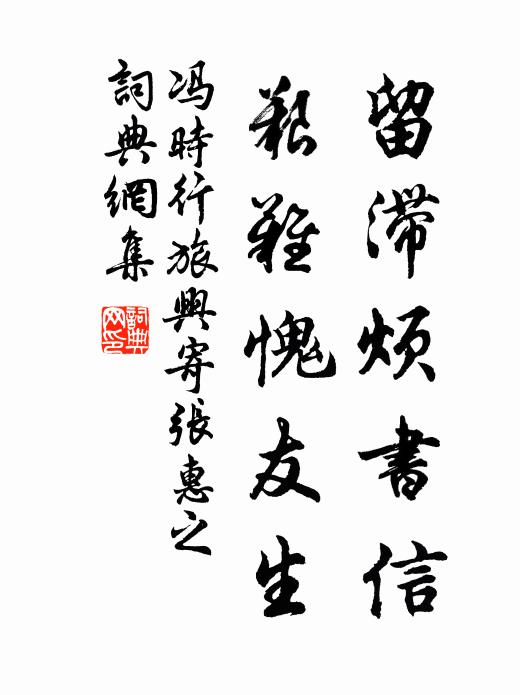 留滯煩書信
艱難愧友生
冯時行旅興寄張惠之
詞典網集
詞典
网印